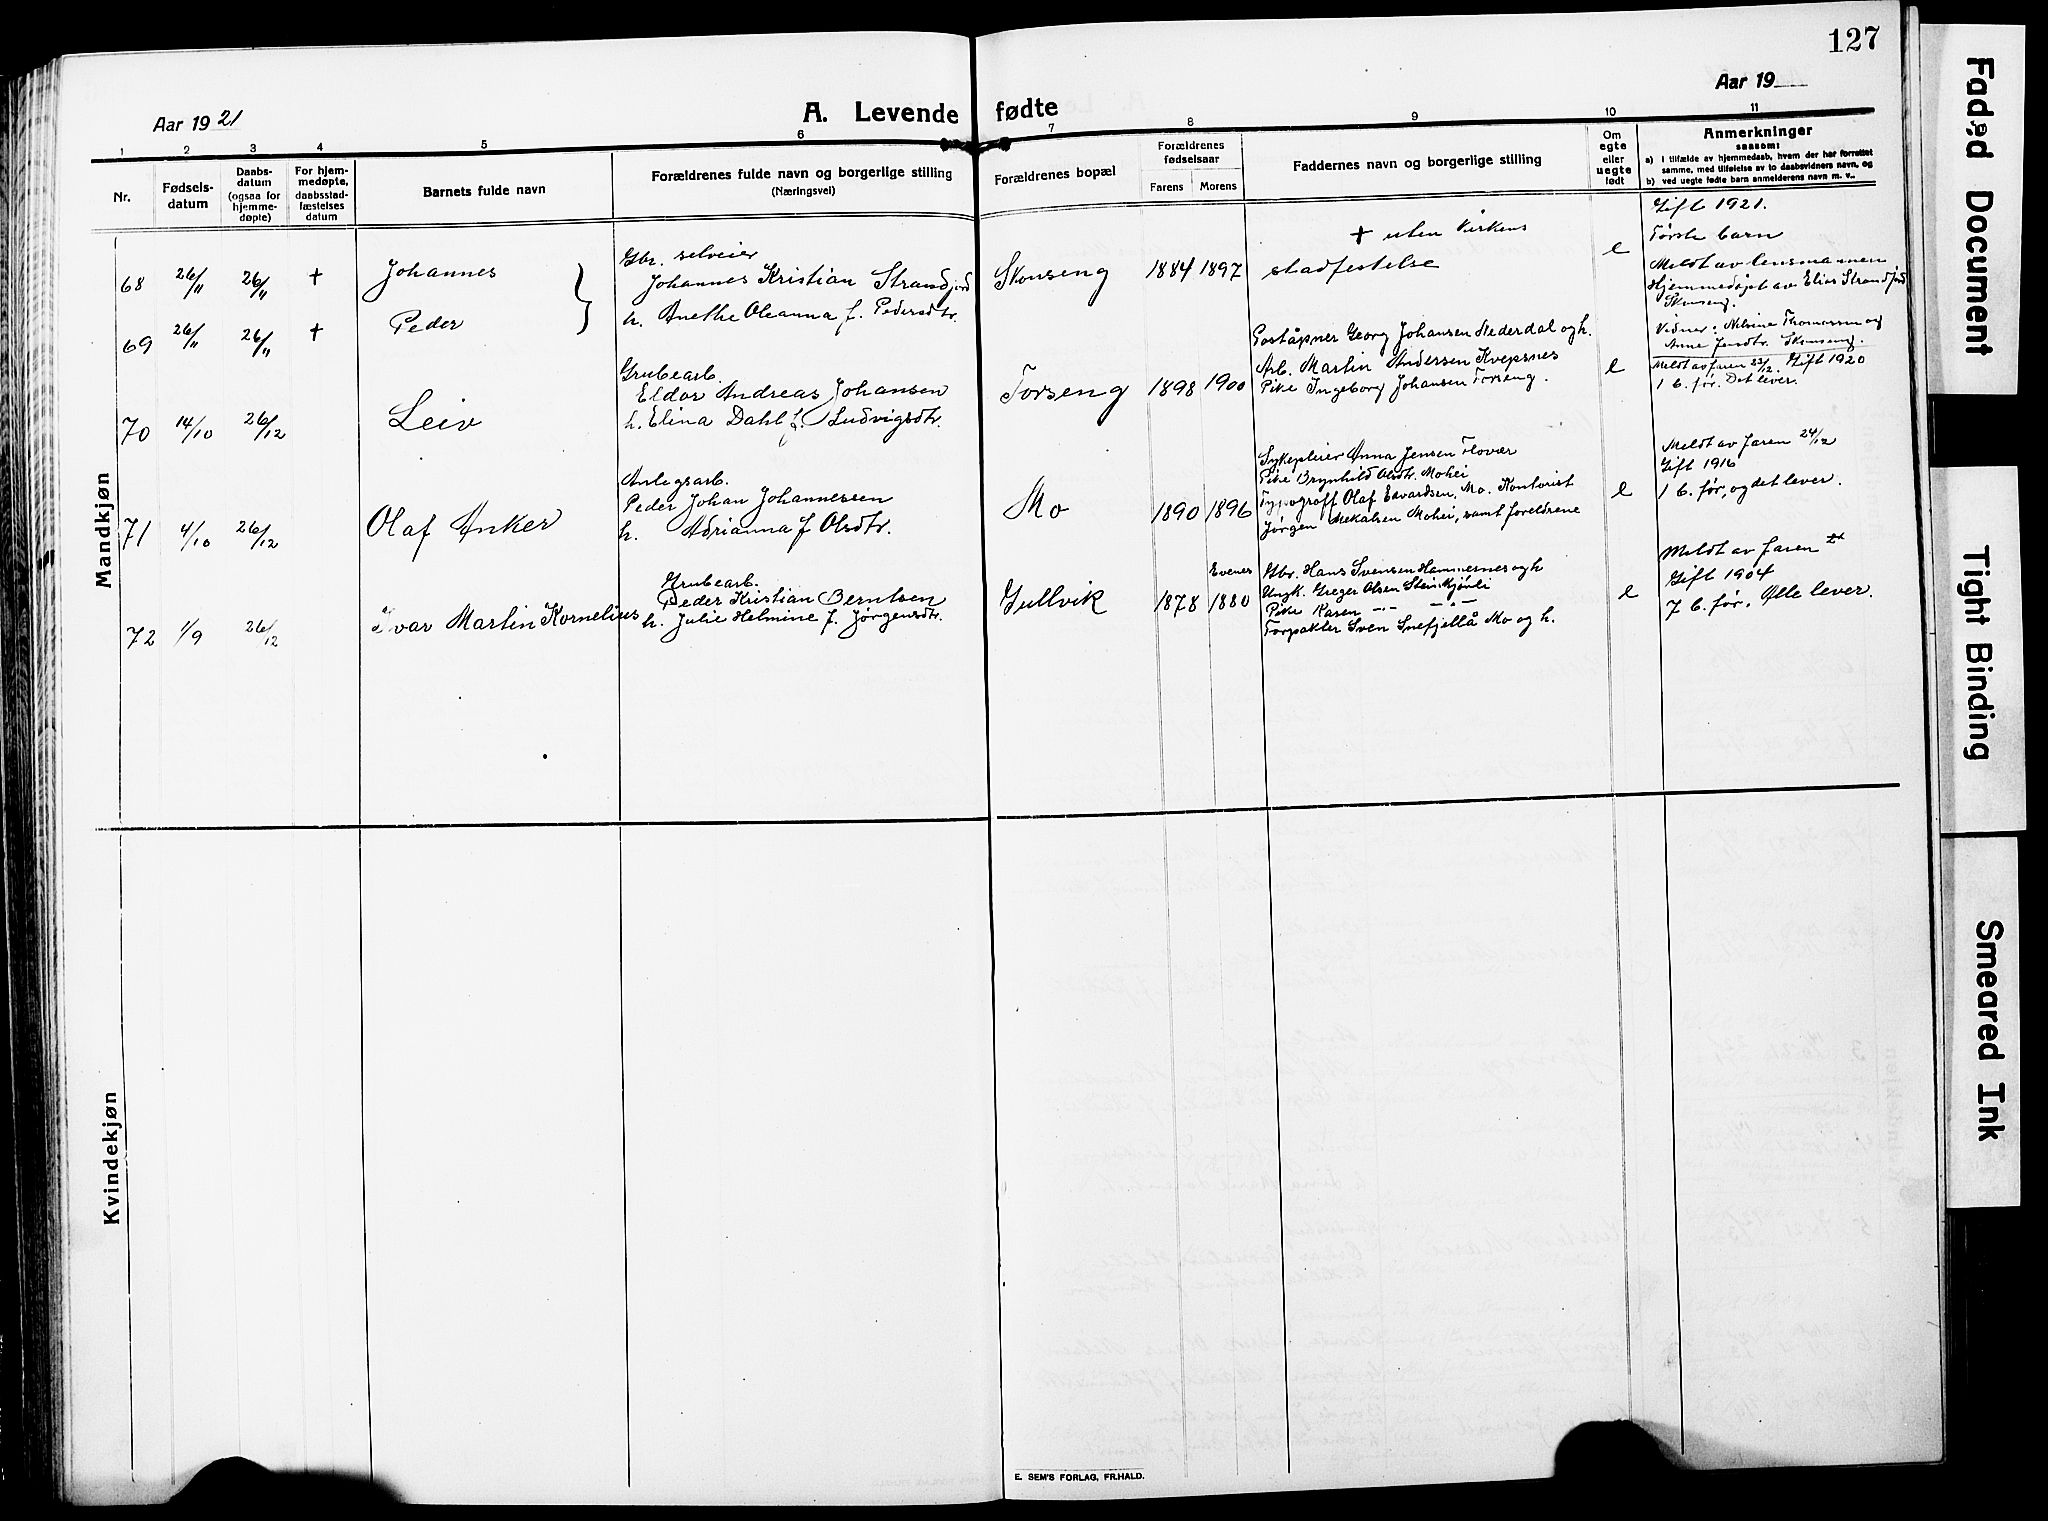 127
Aar 1921
A. Levende fødte
Aar 19
1 2 3 4 5 6 7 8 9 10 11
Nr.
Fødsels-
datum
Daabs-
datum
(ogsaa for
hjemme-
døpte)
For hjem-
medøpte,
daabsstad-
fæstelses
datum
Barnets fulde navn
Forældrenes fulde navn og borgerlige stilling
(Næringsvei)
Forældrenes bopæl
Forældrenes
fødselsaar
Farens Morens
Faddernes navn og borgerlige stilling
Om
egte
eller
uegte
født
Anmerkninger
saasom:
a) i tilfælde av hjemmedaab, hvem der har forrettet
samme, med tilføielse av to daabsvidners navn, og
b) ved uegte fødte barn anmelderens navn m. v..
Mandkjøn
68 26/11 26/11 + Johannes
Gbr. selveier
Johannes Kristian Strandjord
h. Anethe Oleanna f. Pedersdtr.
Skonseng 1884 1897
+ uten kirkens
stadfestelse
e
Gift 1921.
Første barn
Meldt av lensmannen
Hjemmedøpt av Elias Strandjord
Skonseng.
Vidner: Nilsine Thomassen og
Anne Jensdtr. Skonseng.
69 26/11 26/11 + Peder
70 14/10 26/12 Leiv
Grubearb.
Eldar Andreas Johansen
h. Elina Dahl f. Ludvigsdtr.
Forseng 1898 1900
Poståpner Georg Johansen Nederdal og h.
Arb. Martin Andersen Kvepsnes
Pike Ingeborg Johansen Forseng.
e
Meldt av faren 23/12. Gift 1920
1 b. før. Det lever.
71 4/10 26/12 Olaf Anker
Anlegsarb.
Peder Johan Johannessen
h. Adrianna f. Olsdtr.
Mo 1890 1896
Sykepleier Anna Jensen Flovær
Pike Brynhild Olsdtr. Mohei
Typograff Olaf Edvardsen, Mo. Kontorist
Jørgen Mekalsen Mohei, samt foreldrene
e
Meldt av faren 24/12
Gift 1916
1 b. før, og det lever.
72 1/9 26/12 Ivar Martin Kornelius
Grubearb.
Peder Kristian Berntsen
h. Julie Helmine f. Jørgensdtr.
Gullvik 1878 Evenes 1880
Gbr. Hans Svensen Hammernes og h
Ungk. Greger Olsen Steinkjønli
Pike Karen -"- -"-
Forpakter Sven Snefjellå Mo og h.
e
Meldt av faren
Gift 1904
7 b. før. Alle lever.
Kvindekjøn
E. SEM'S FORLAG, FR.HALD.
Faded Document
Tight Binding
Smeared Ink